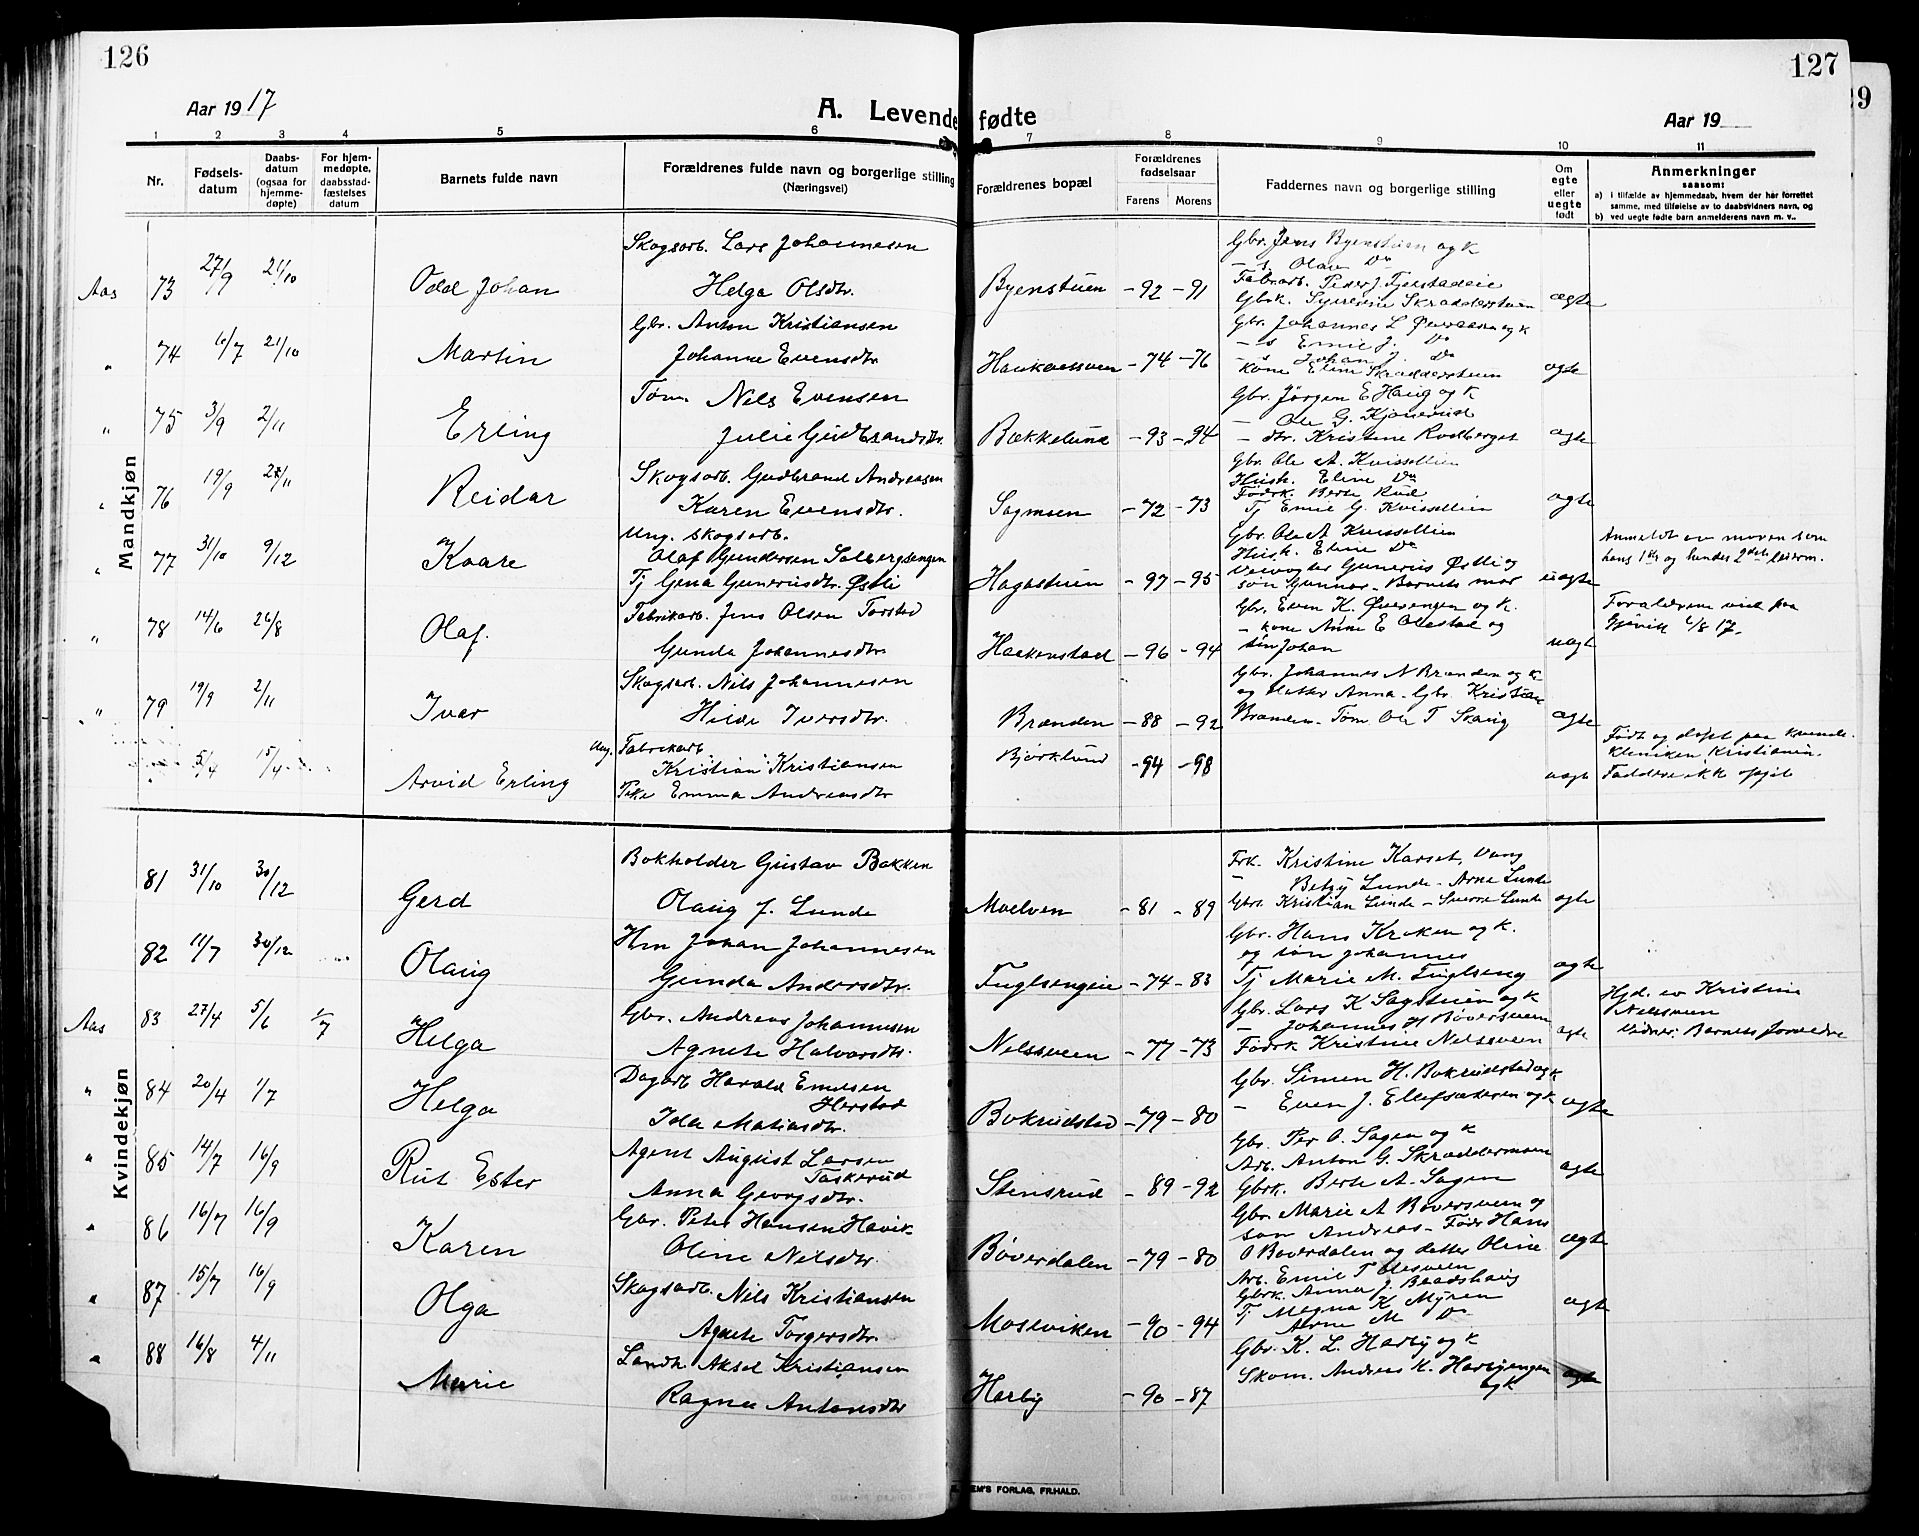 126
127
29
Aar 1917
A. Levende fødte
Aar 19
1 2 3 4 5 6 7 8 9 10 11
Nr.
Fødsels-
datum
Daabs-
datum
(ogsaa for
hjemme-
døpte)
For hjem-
medøpte,
daabsstad-
fæstelses
datum
Barnets fulde navn
Forældrenes fulde navn og borgerlige stilling
(Næringsvei)
Forældrenes bopæl
Forældrenes
fødselsaar
Farens Morens
Faddernes navn og borgerlige stilling
Om
egte
eller
uegte
født
Anmerkninger
saasom:
a) i tilfælde av hjemmedaab, hvem der har forrettet
samme, med tilføielse av to daabsvidners navn, og
b) ved uegte fødte barn anmelderens navn m. v..
Mandkjøn
Aas 73 27/9 21/10 Odd Johan
Skogsarb. Lars Johannesen
Helga Olsdtr.
Byenstuen -92 -91
Gbr. Jens Byenstuen og k
- s. Olav Do
Fabrarb. Peder J. Fjerstadeie
Gbrk. Syverine Skrædderstuen
ægte
" 74 6/7 21/10 Martin
Gbr. Anton Kristiansen
Johanne Evensdtr
-74 -76
Gbr. Johannes L og k
- s Emil J. Do
- s Johan J. Do
Kone Eline Skrædderstuen
ægte
" 75 3/9 2/11 Erling
Tøm. Nils Evensen
Julie Gudbrandsdtr.
Bækkelund -93 -94
Gbr. Jørgen E Haug og k
- Ole G. Kjønerud
- dtr. Kristine Rodberget
ægte
" 76 19/9 Reidar
Skogsarb. Gudbrand Andreasen
Karen Evensdtr.
Sagmoen -72 -73
Gbr. Ole A. Kvissellien
Hustr. Eline Do
Fødrk. Berte Rud
Tj Emil G. Kvissellien
ægte
" 77 31/10 9/12 Kaare
Ung. skogsarb.
Olaf Gundersen Solbergsengen
Tj Gina Gunerusdtr. Østli
Hagastuen -97 -95
Gbr. Ole A Kvissellien
Hustr. Eline Do
Veivogter Gunerius Østli og
søn Gunnar - Barnets mor
uægte
Anmeldt av moren som
hans 1ste og hendes 2det leierm.
" 78 14/6 26/8 Olaf.
Fabrikarb. Jens Olsen Torstad
Gunda Johannesdtr
Haakenstad -96 -94
Gbr. Even K. Øversengen og k.
- kone Anne E Olestad og
søn Johan
uægt
Forældrene viet paa
Gjøvik 4/8 17.
" 79 19/9 2/11 Ivar
Skogsarb. Nils Johannesen
Hilda Iversdtr.
Brænden -88 -92
Gbr. Johannes N Brænden og k
og datter Anna - Gbr. Kristian
Brænden - Tøm. Ole T Skaug
ægte
5/4 15/4 Arvid Erling
Ung. Fabrikarb.
Kristian Kristiansen
Pike Emma Andreasdtr
Bjørklund -94 -98
uægt
Født og døpt paa kvinde-
kliniken, Kristiania.
Faddere ikke opgit
Kvindekjøn
81 31/10 30/12 Gerd
Bokholder Gustav Bakken
Olaug J. Lunde
Moelven -81 -89
Frk. Kristine Karset, Vang
- Betzy Lunde - Arne Lunde
Gbr. Kristian Lunde - Sverre Lunde
ægte
82 11/7 30/12 Olaug
Hm Johan Johannesen
Gunda Andersdtr.
Fuglsengeie -74 -83
Gbr. Hans Kroken og k.
og søn Johannes
Tj Marie M. Fuglseng
ægte
Aas 83 27/4 5/6 1/7 Helga
Gbr. Andreas Johannesen
Agnete Halvorsdtr.
Nelsveen -77 -73
Gbr. Lars K Sagstuen og k
- Johannes H Bøversveen
Fødrk Kristine Nelsveen
ægte
Hjd. av Kristine
Nelsveen
Vidner: Barnets forældre
" 84 20/4 1/7 Helga
Dagarb Harald Emilsen
Herstad
Ida Matiasdtr.
Bokrudstad -79 -80
Gbr. Simen H. Bokrudstad og k
- Even J. Ellefsæteren og k
ægte
" 85 14/7 16/9 Rut Ester
Agent August Larsen
Taskerud
Anna Georgsdtr.
Stensrud -89 -92
Gbr. Per O. Sagen og k
Arb. Anton G. Skræddermoen
Gbrk. Berte A. Sagen
ægte
" 86 16/7 16/9 Karen
Gbr. Peter Hansen Havik
Oline Nelsdtr.
Bøverdalen -79 -80
Gbr. Marie A Bøversveen og
søn Andreas - Fødr Hans
O Bøverdalen og datter Oline
ægte
" 87 15/7 16/9 Olga
Skogsarb. Nils Kristiansen
Agnete Torgersdtr.
Moseviken -90 -94
Arb. Emil T Olesveen
Gbrk. Anna J. Baadshaug
Tj Magna K. Myren
Arne M Do
ægte
" 88 16/8 4/11 Marie
Landh. Aksel Kristiansen
Ragna Antonsdtr
Harby -90 -87
Gbr. K. L. Harby og k
Skom. Andreas K. Harbyengen
og k
ægte
EM'S FORLAG, FR.HALD.